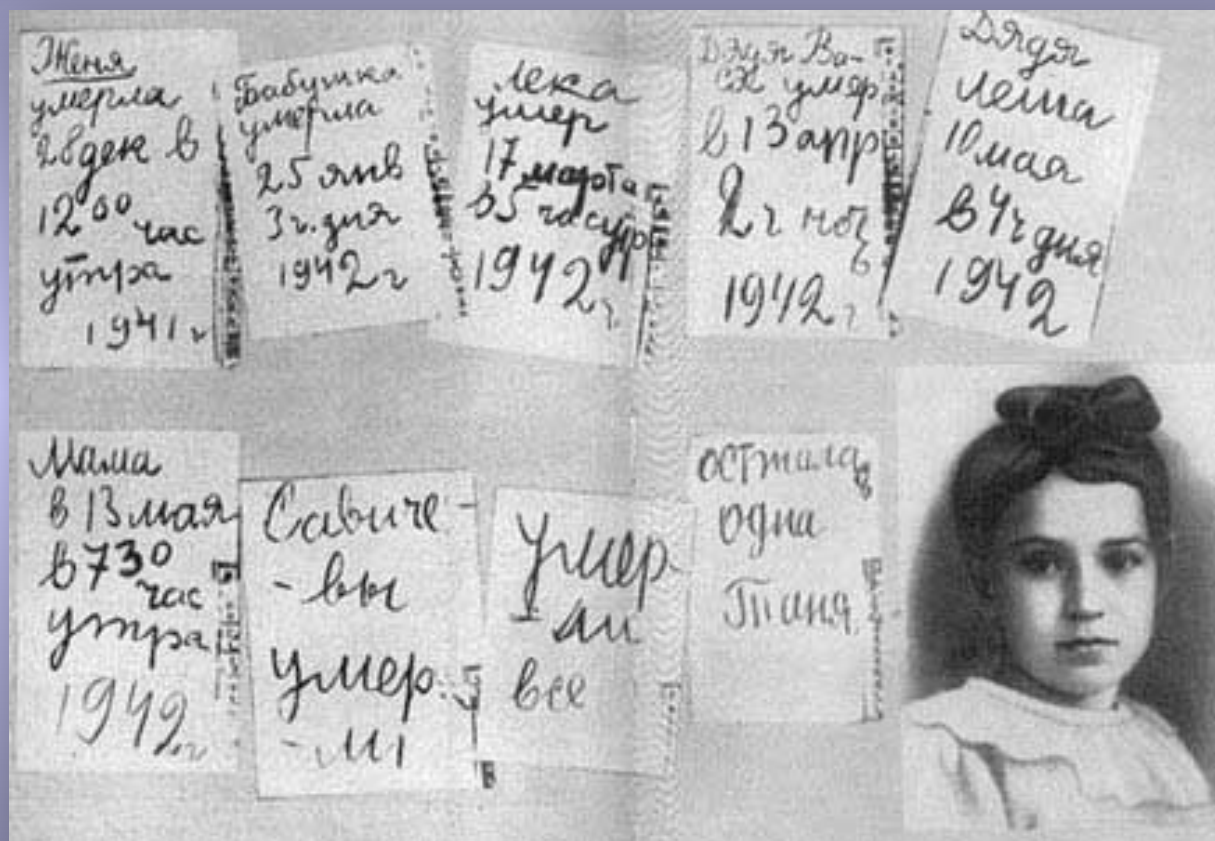 Женя
умерла
28 дек в
12 00 час
утра
1941 г
Бабушка
умерла
25 янв
3 ч. дня
1942 г
Лека
умер
17 марта
в 5 час утр
1942 г
Дядя Ва-
ся умер
в 13 апр
2 ч ночь
1942 г
Дядя
Леша
10 мая
в 4 ч дня
1942
Мама
в 13 мая
в 7 30
час
утра
1942 г
Савиче-
-вы
умер-
-ли
умер-
ли
все
осталась
одна
Таня.